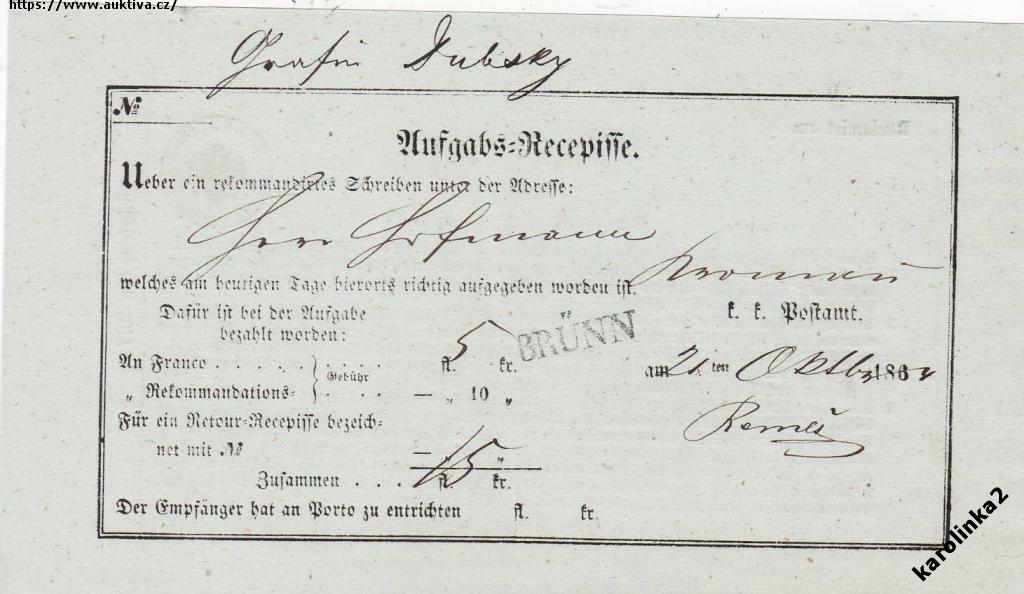 https://www.auktiva.cz/
Grafin Dubsky
No
Aufgabs-Recepisse.
Ueber ein rekommandirtes Schreiben unter der Adresse:
Herr Hofmann
Kromau
welches am heutigen Tage hierorts richtig aufgegeben worden ist.
k. k. Postamt.
Dafür ist bei der Aufgabe
bezahlt worden:
BRÜNN
An Franco . . . . . . . . . fl. 5 kr.
Gebühr
„ Rekommandations- . . . — „ 10 „
am 21 ten Oktbr 186
Für ein Retour-Recepisse bezeich-
net mit No — „ „
Zusammen . . . fl. 15 kr.
Der Empfänger hat an Porto zu entrichten fl. kr.
karolinka2